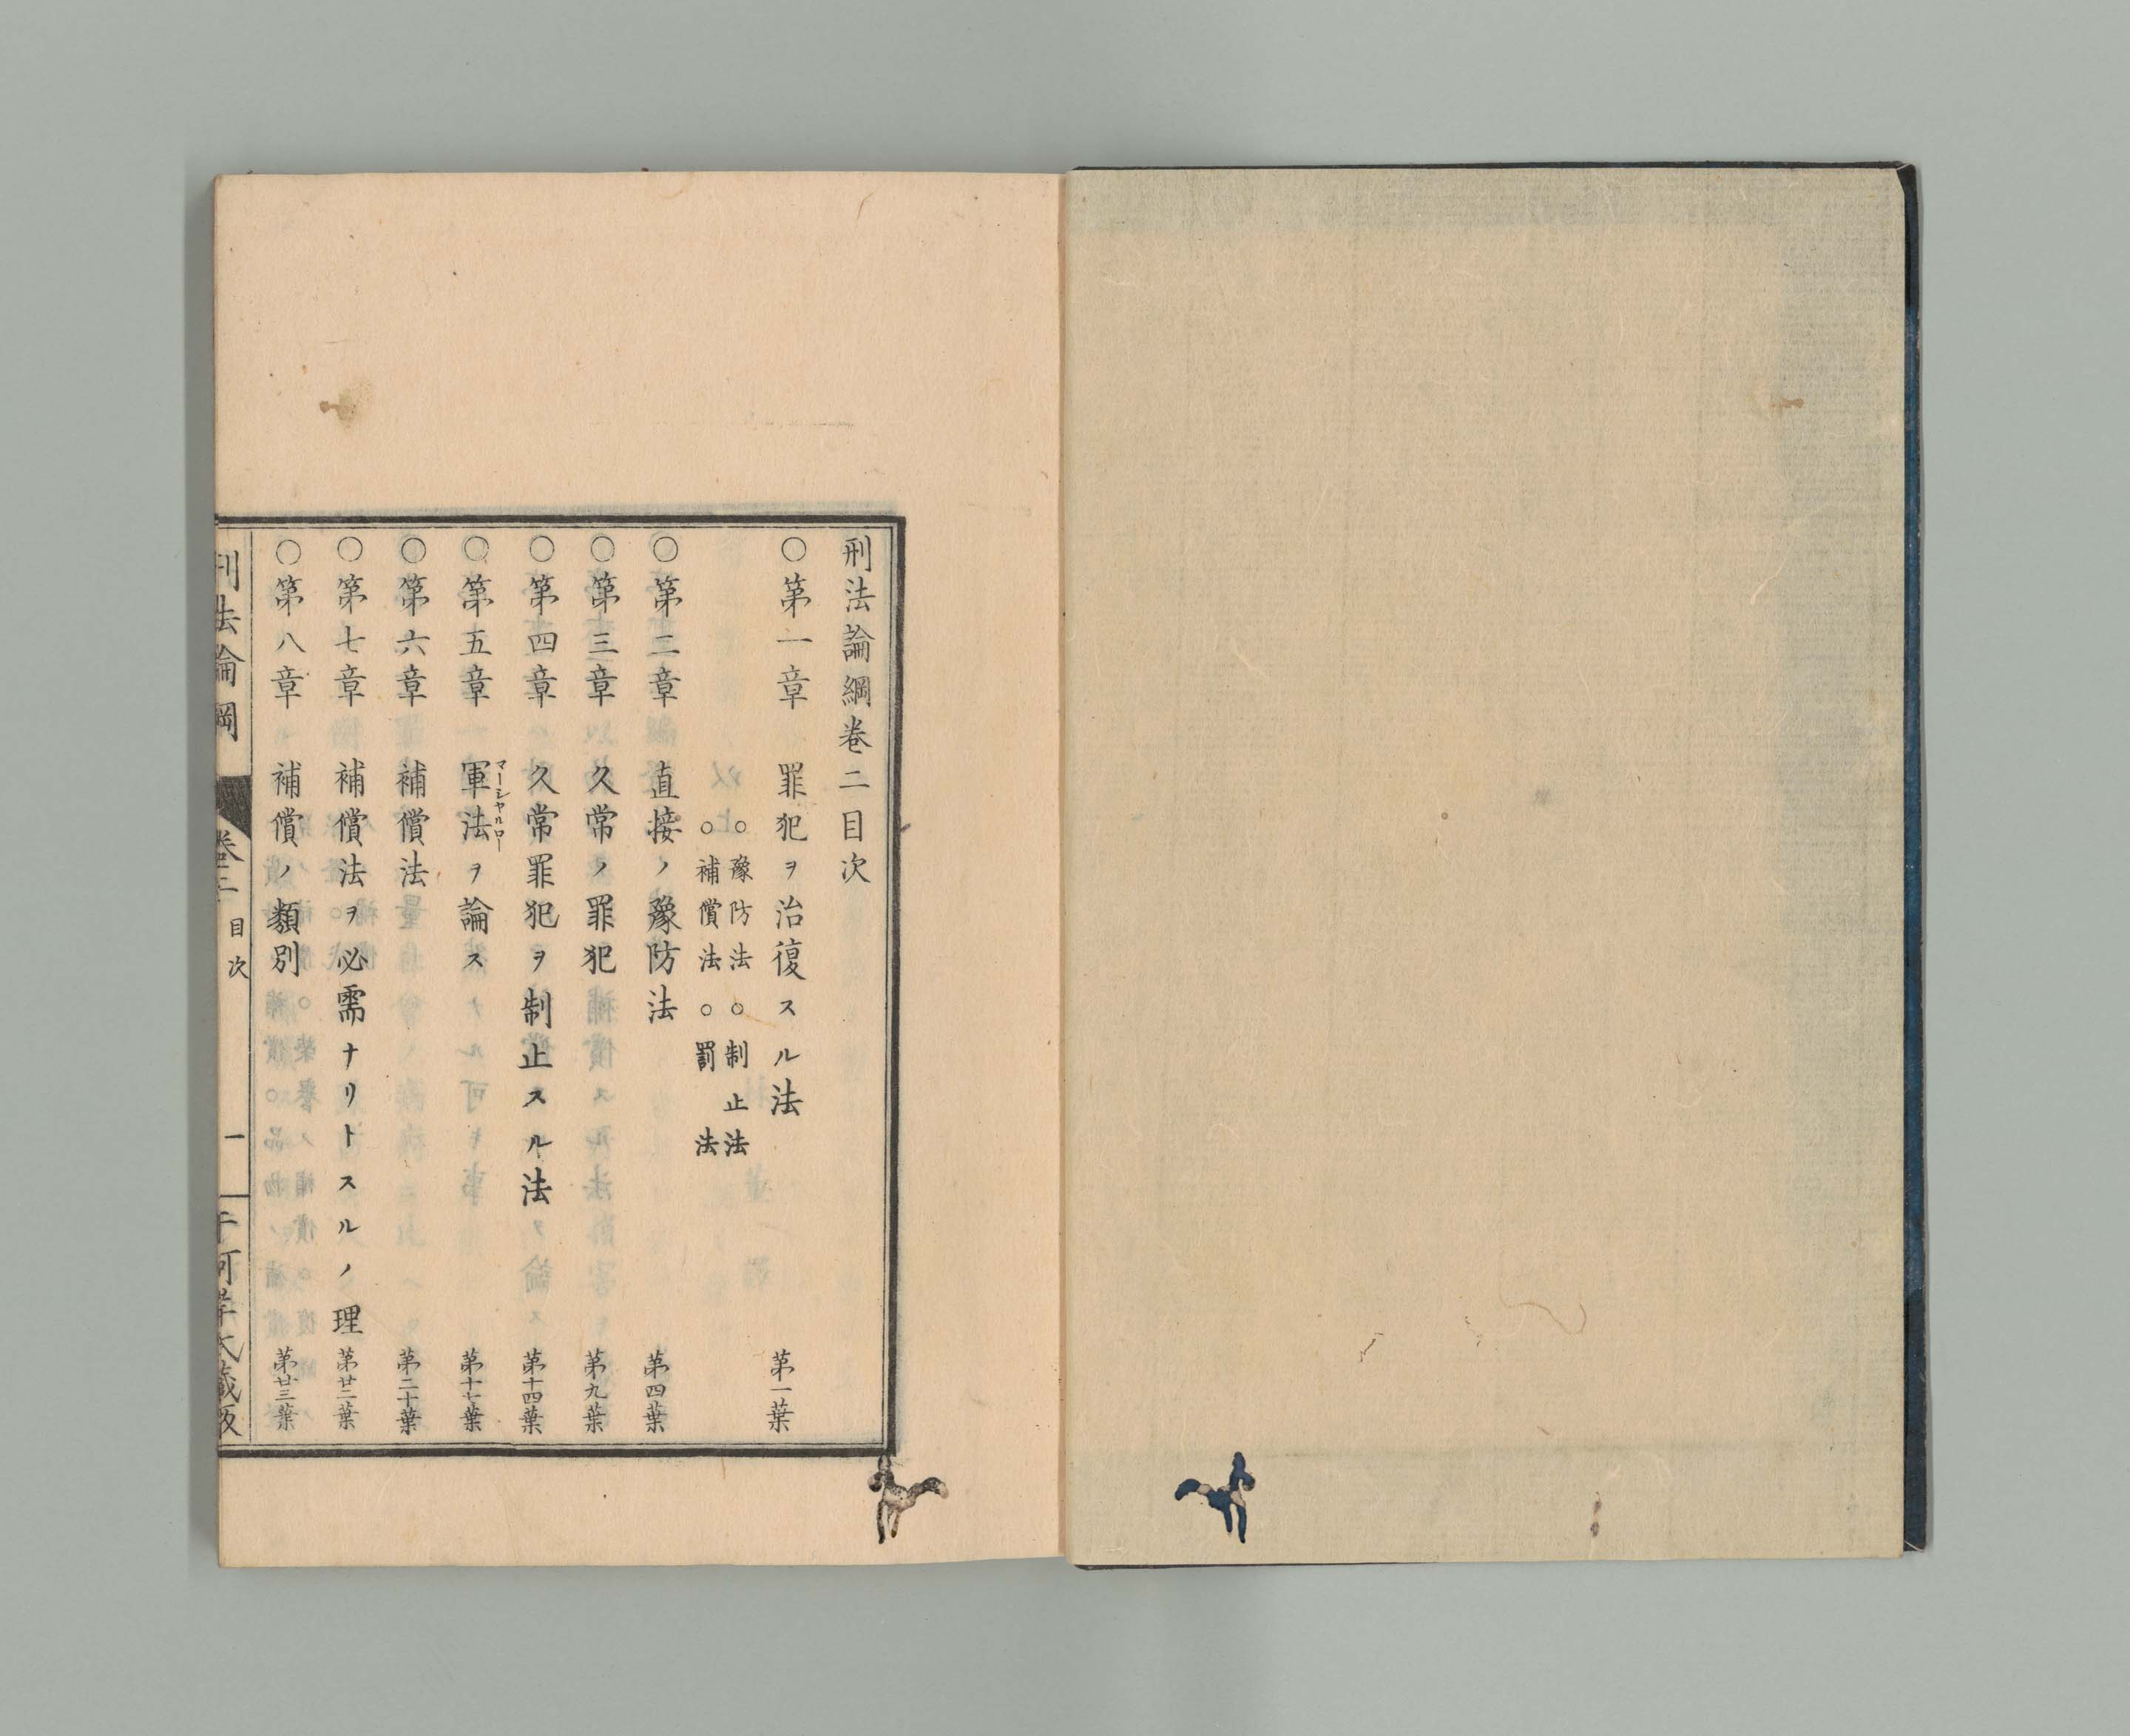 刑法論綱卷二目次
○第一章　罪犯ヲ治復スル法　第一葉
○豫防法○制止法
○補償法○罰法
○第二章　直接ノ豫防法　第四葉
○第三章　久常ノ罪犯　第九葉
○第四章　久常罪犯ヲ制止スル法　第十四葉
○第五章　軍法ヲ論ス　第十七葉
マーシャルロー
○第六章　補償法　第二十葉
○第七章　補償法ヲ必需ナリトスルノ理　第廿二葉
○第八章　補償ノ類別　第廿三葉
刑法論綱　卷二　目次　一　河岸氏藏版